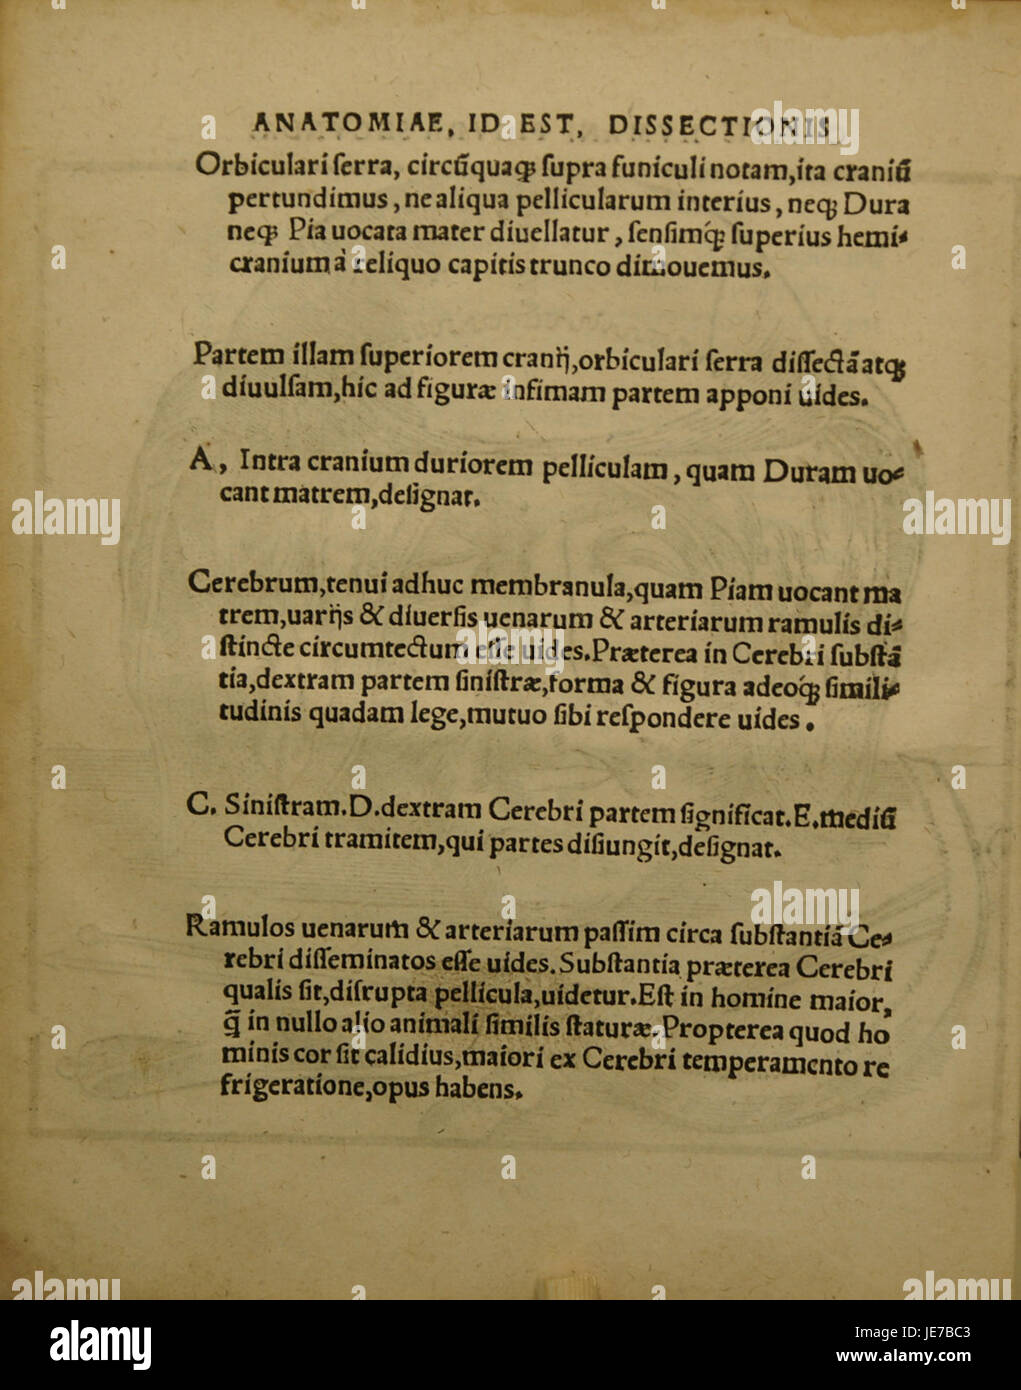 ANATOMIAE, ID EST, DISSECTIONIS
Orbiculari ſerra, circūquaqꝫ ſupra funiculi notam,ita craniū
pertundimus, ne aliqua pellicularum interius, neqꝫ Dura
neqꝫ Pia uocata mater diuellatur, ſenſimq́ꝫ ſuperius hemi-
cranium à reliquo capitis trunco dimouemus.
Partem illam ſuperiorem cranĳ,orbiculari ſerra diſſectā atqꝫ
diuulſam,hic ad figuræ infimam partem apponi uides.
A, Intra cranium duriorem pelliculam, quam Duram uo-
cant matrem,deſignat.
Cerebrum,tenui adhuc membranula,quam Piam uocant ma
trem,uarĳs & diuerſis uenarum & arteriarum ramulis di-
ſtincte circumtectum eſſe uides.Præterea in Cerebri ſubſtā
tia,dextram partem ſiniſtræ,forma & figura adeoq́ꝫ ſimili-
tudinis quadam lege,mutuo ſibi reſpondere uides.
C. Siniſtram.D.dextram Cerebri partem ſignificat.E.mediū
Cerebri tramitem,qui partes diſiungit,deſignat.
Ramulos uenarum & arteriarum paſſim circa ſubſtantiā Ce-
rebri diſſeminatos eſſe uides.Subſtantia præterea Cerebri
qualis ſit,diſrupta pellicula,uidetur.Eſt in homine maior,
q̄ in nullo alio animali ſimilis ſtaturæ.Propterea quod ho
minis cor ſit calidius,maiori ex Cerebri temperamento re
frigeratione,opus habens.
alamy
www.alamy.com
Image ID: JE7BC3